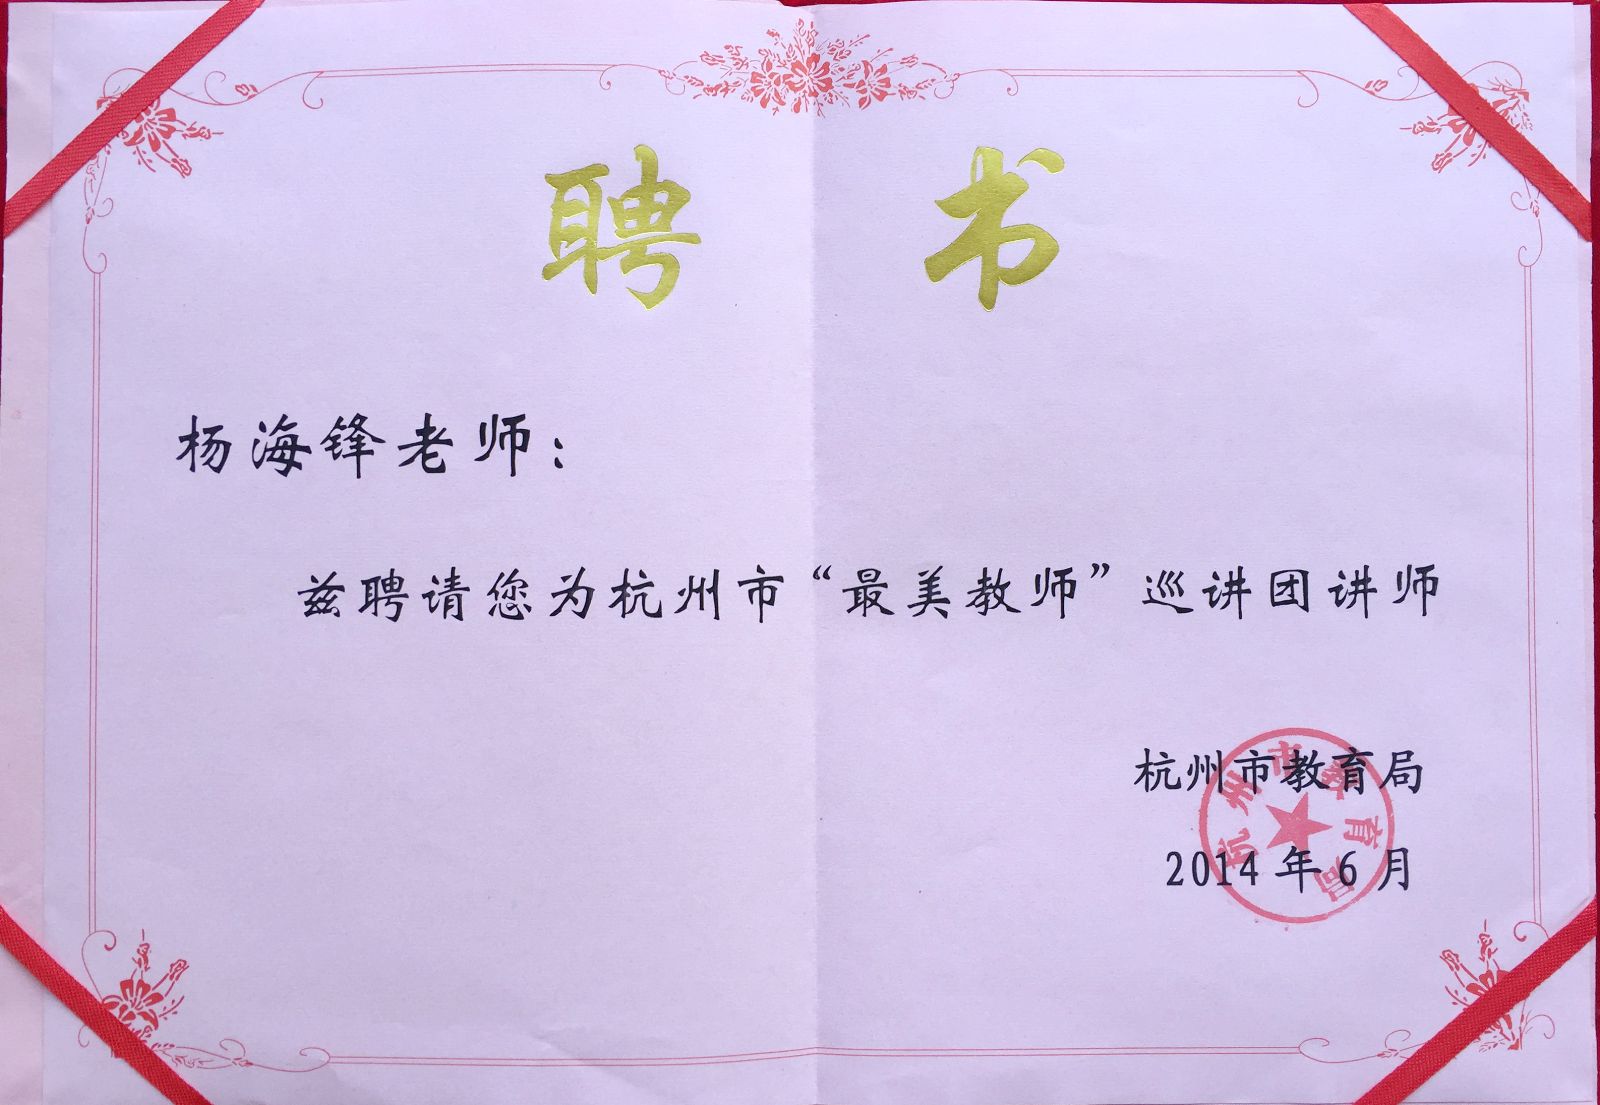 聘书
杨海锋老师：
兹聘请您为杭州市“最美教师”巡讲团讲师
杭州市教育局
2014年6月
杭州市教育局